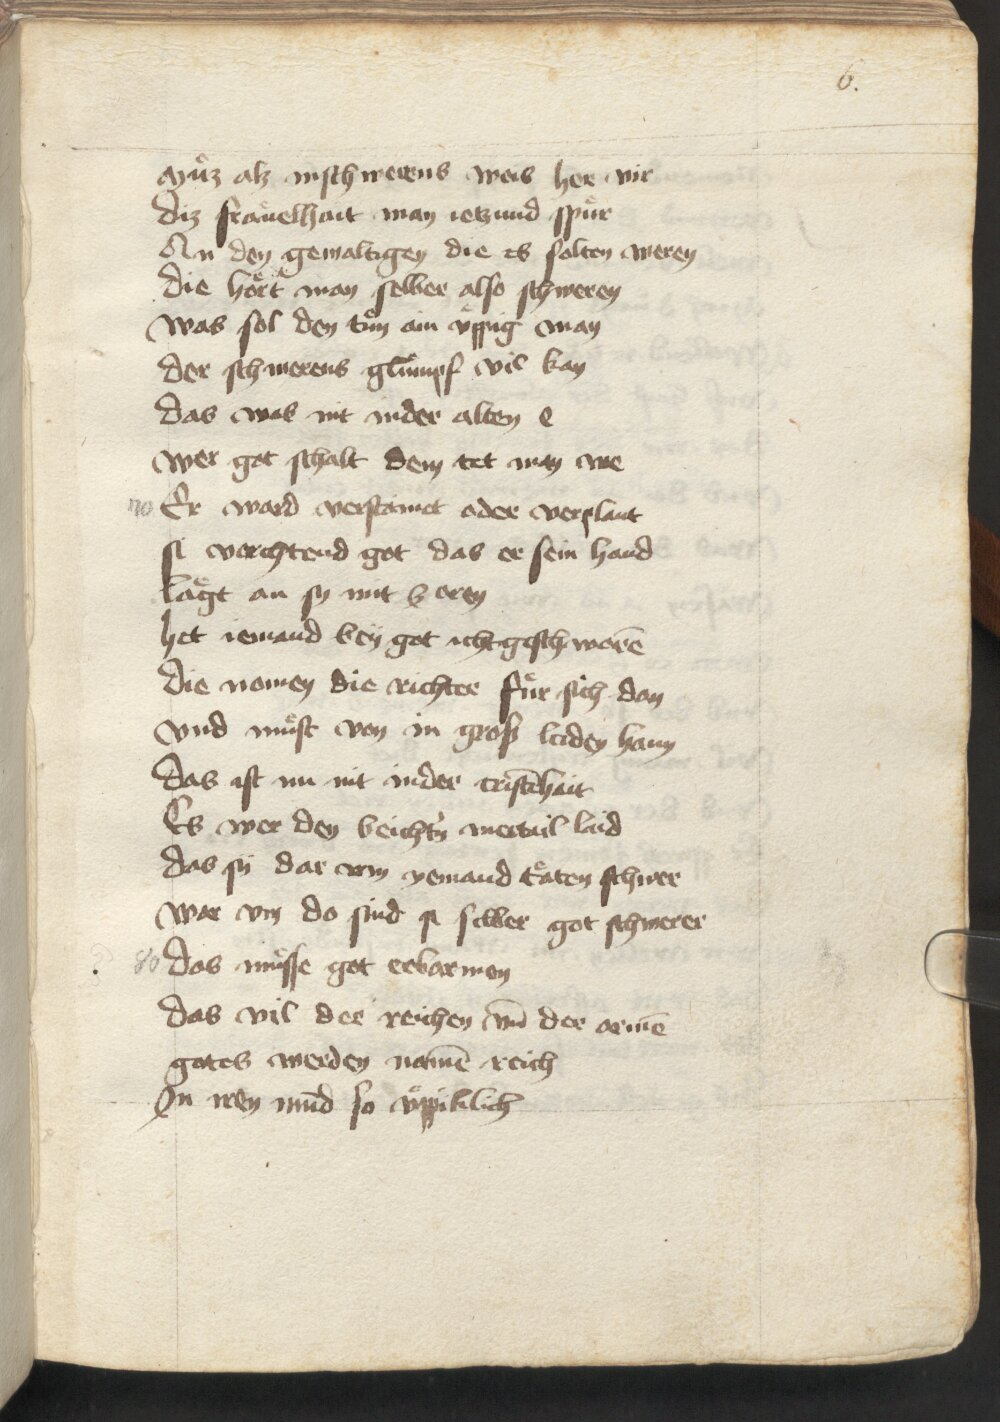 6.
Muͤz alz inschwerens weis her vir
Diz fraͤuelhait man ietzund spuͤr
An den gewaltigen die es solten weren
Die hoͤrt man selber also schweren
Was sol den tuͦn ain v̈ppig man
Der schwerens gluͤmpf vil kan
Das was nit inder alten e
Wer got schalt dem tet man we
70 Er ward verstainet oder verplant
si vorchtend got das er sein hand
laͤgt an sy mit zoren
het iemand beÿ got icht geschworē
Die namen die richter fuͤr sich dan
Vnd muͤst von in groß leiden hann
Das ist nu nit inder cristēhait
Es wer den beichtn̄ mertail laid
Das si dar vm yemand taͤten schwer
War vm do sind si selber got schwerer
80 Das muͤsse got erbarmen
Das vil der reichen vn̄ der armē
gotes werden namē reich
In iren mūd so v̈ppiklich